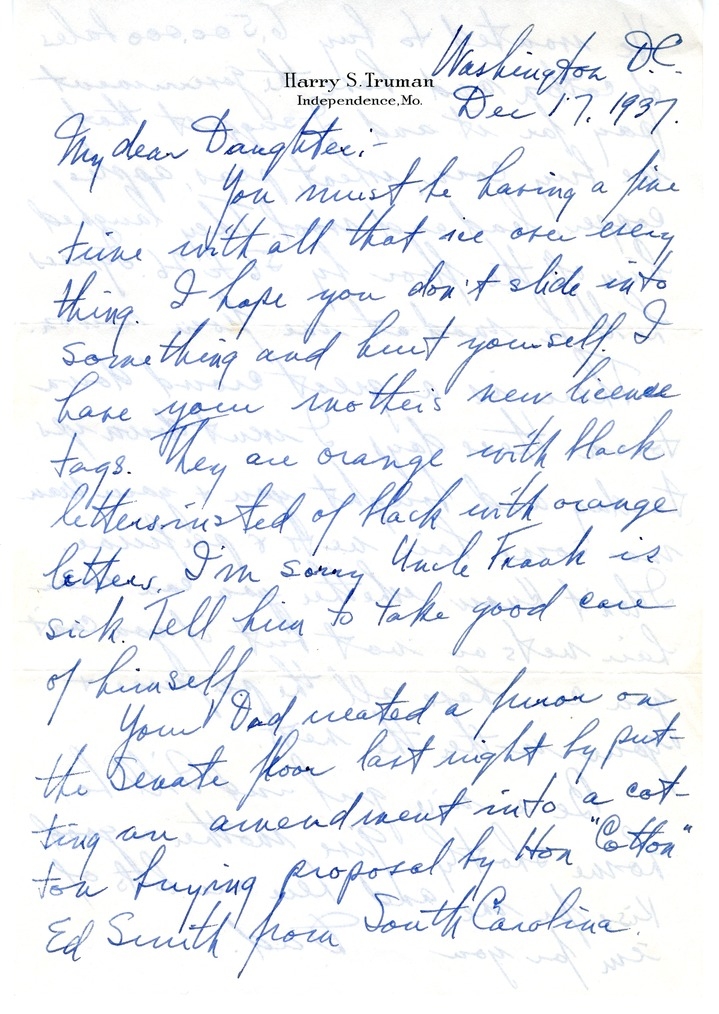 Harry S. Truman
Independence, Mo.
Washington D.C.
Dec 17, 1937.
My dear Daughter:-
You must be having a fine
time with all that ice over every
thing. I hope you don't slide into
something and hurt yourself. I
have your mother's new licence
tags. They are orange with black
letters insted of black with orange
letters. I'm sorry Uncle Frank is
sick. Tell him to take good care
of himself.
Your Dad created a furor on
the Senate floor last night by put-
ting an amendment into a cot-
ton buying proposal by Hon "Cotton"
Ed Smith from South Carolina.